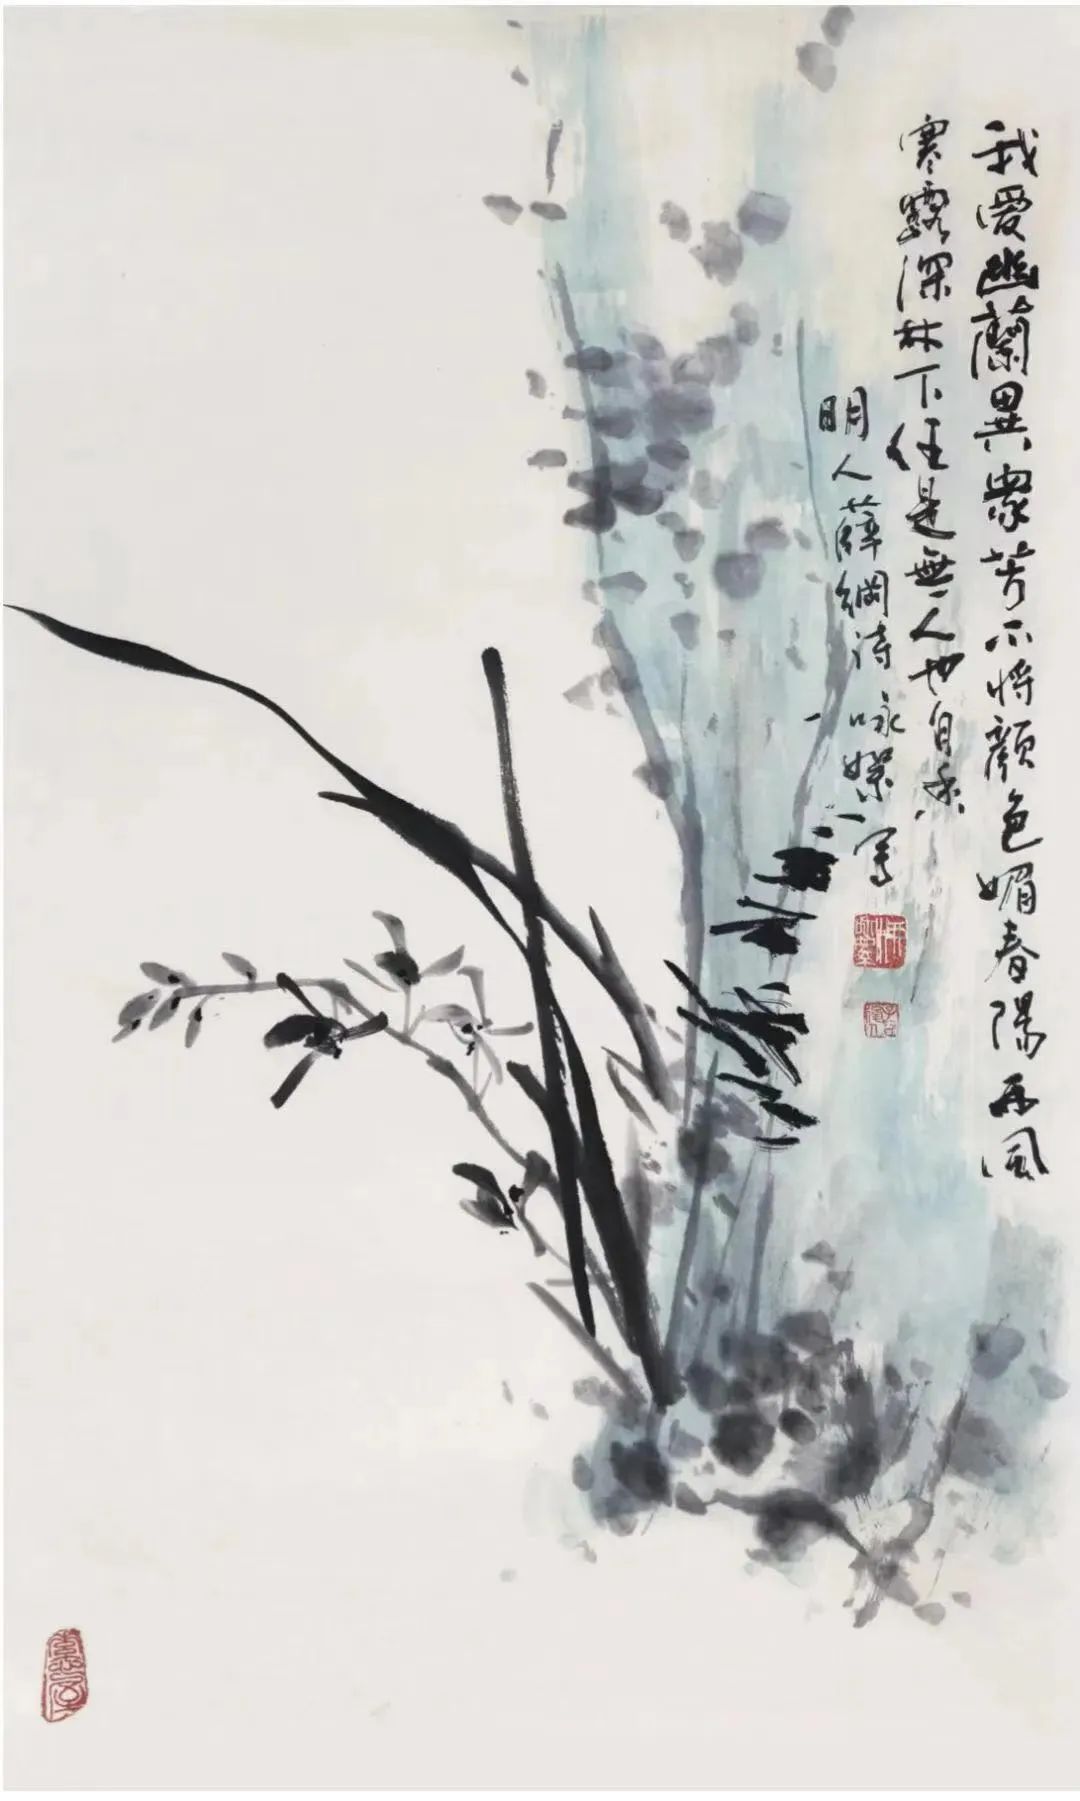 我愛幽蘭異衆芳不將顔色媚春陽西風
寒露深林下任是無人也自香
明人薛綱詩 咏 寫